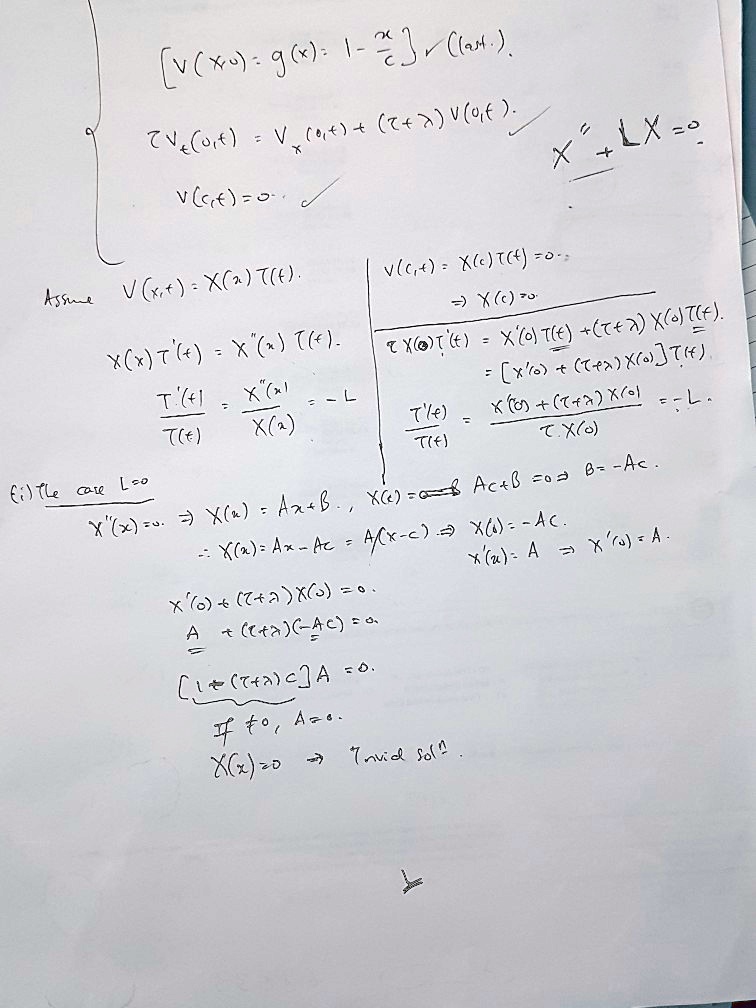 [V(x,0) = g(x) = 1 - x/c] ✓ (last.).
τV_t(0,t) = V_x(0,t) + (τ+λ) V(0,t). ✓
X'' + LX = 0.
V(c,t) = 0. ✓
Assume V(x,t) = X(x) T(t).
X(x) T'(t) = X''(x) T(t).
T'(t)/T(t) = X''(x)/X(x) = - L
V(c,t) = X(c) T(t) = 0.
⇒ X(c) = 0
τ X(0) T'(t) = X'(0) T(t) + (τ+λ) X(0) T(t).
= [X'(0) + (τ+λ) X(0)] T(t)
T'(t)/T(t) = X'(0) + (τ+λ) X(0)/τ.X(0) = - L.
(i) The case L=0
X''(x) = 0. ⇒ X(x) = Ax+B., X(c) = Ac+B = 0 ⇒ B = -Ac.
∴ X(x) = Ax - Ac = A(x-c) ⇒ X(0) = -AC.
X'(x) = A ⇒ X'(0) = A.
X'(0) + (τ+λ) X(0) = 0.
A + (τ+λ)(-Ac) = 0.
[1 - (τ+λ)c] A = 0.
If ≠0, A=0.
X(x) = 0 ⇒ Trivial solⁿ.